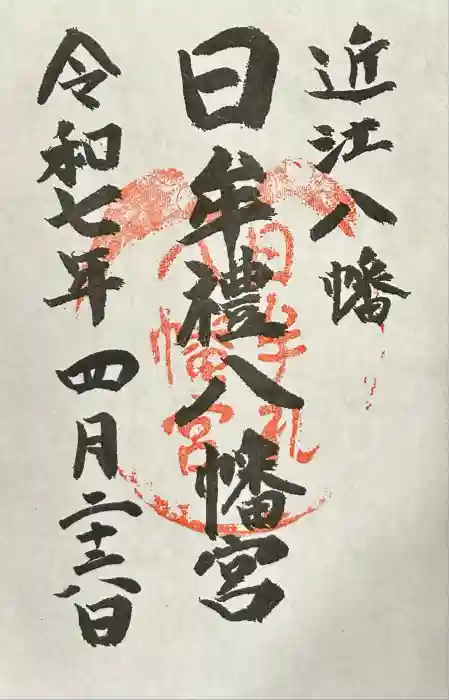 近江八幡
日牟禮八幡宮
令和七年 四月二十六日
日牟礼
八幡宮